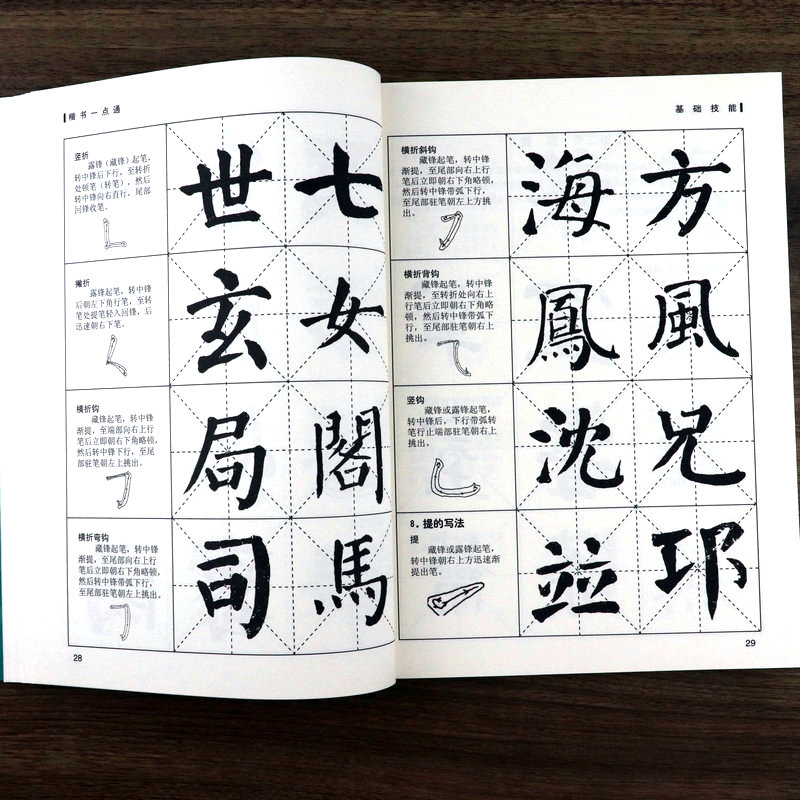 楷书一点通
竖折
露锋(藏锋)起笔,
转中锋后下行,至转折
处顿笔(转笔),然后
转中锋向右直行,尾部
回锋收笔。
世 七
撇折
露锋起笔,转中锋
后朝左下角行笔,至转
笔处提笔轻入回锋,后
迅速朝右下笔。
玄 女
横折钩
藏锋起笔,转中锋
渐提,至端部向右上行
笔后立即朝右下角略顿,
然后转中锋下行,至尾
部驻笔朝左上挑出。
局 閣
横折弯钩
藏锋起笔,转中锋
渐提,至尾部向右上行
笔后立即朝右下角略顿,
然后转中锋带弧下行,
至尾部驻笔朝左上挑出。
司 馬
28
基础技能
横折斜钩
藏锋起笔,转中锋
渐提,至尾部向右上行
笔后立即朝右下角略顿,
然后转中锋带弧下行,
至尾部驻笔朝左上方挑
出。
海 方
横折背钩
藏锋起笔,转中锋
渐提,至转折处向右上
行笔后立即朝右下角略
顿,然后转中锋带弧下
行,至尾部驻笔朝右上
挑出。
鳳 風
竖钩
藏锋或露锋起笔,
转中锋后,下行带弧转
笔行止端部驻笔朝右上
挑出。
沈 兄
8.提的写法
提
藏锋或露锋起笔,
转中锋朝右上方迅速渐
提出笔。
竝 邛
29